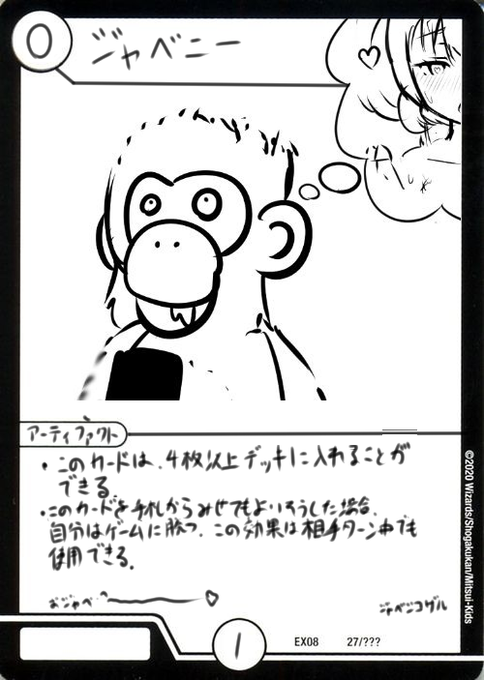 0
ジャベニー
アーティファクト
・このカードは、4枚以上デッキに入れることが
できる
・このカードを手札からみせてもよい。そうした場合、
自分はゲームに勝つ。この効果は相手ターン中でも
使用できる。
おジャベ〜♡
ジャベンコザル
1
EX08 27/???
©2020 Wizards/Shogakukan/Mitsui-Kids